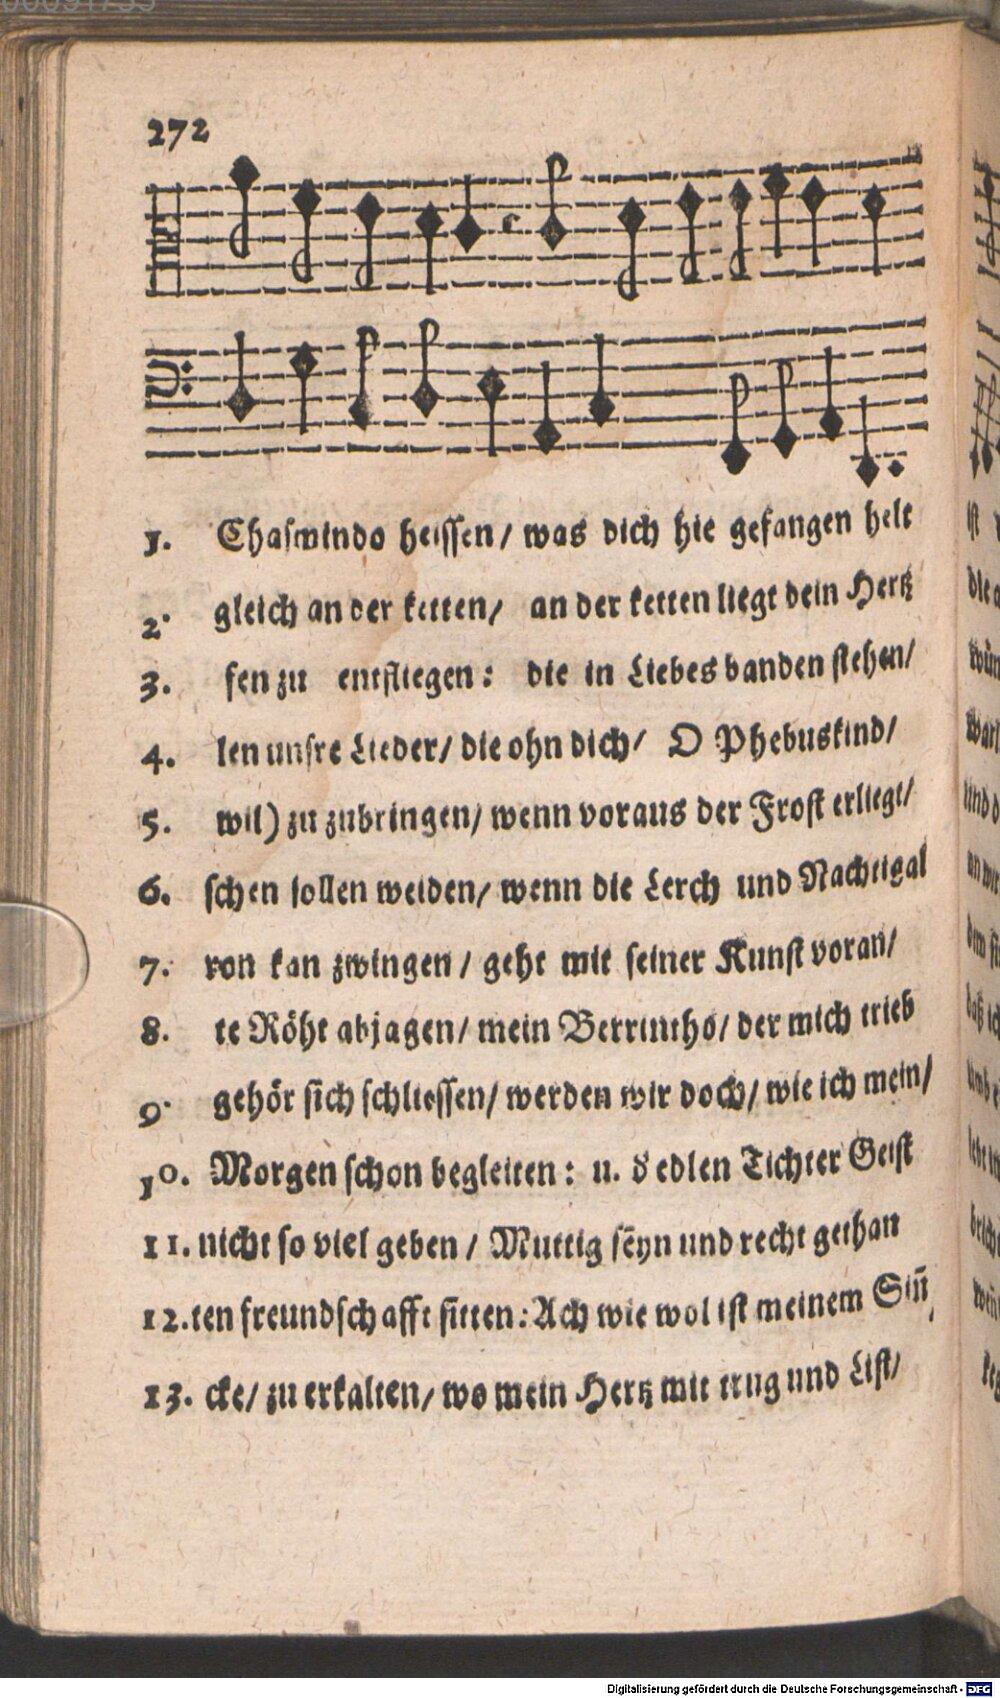 272
1. Chaswindo heissen/ was dich hie gefangen helt
2. gleich an der ketten/ an der ketten liegt dein Hertz
3. fen zu entfliegen: die in Liebes banden stehen/
4. len unsre Lieder/ die ohn dich/ O Phebuskind/
5. wil) zu zubringen/ wenn voraus der Frost erliegt/
6. schen sollen weiden/ wenn die Lerch und Nachtigal
7. ron kan zwingen/ geht mit seiner Kunst voran/
8. te Röht abjagen/ mein Berrintho/ der mich trieb
9. gehör sich schliessen/ werden wir doch/ wie ich mein/
10. Morgen schon begleiten: u. d' edlen Tichter Geist
11. nicht so viel geben/ Muttig seyn und recht gethan
12. ten freundschafft sitten: Ach wie wol ist meinem Siñ/
13. cke/ zu erkalten/ wo mein Hertz mit trug und List/
Digitalisierung gefördert durch die Deutsche Forschungsgemeinschaft - DFG